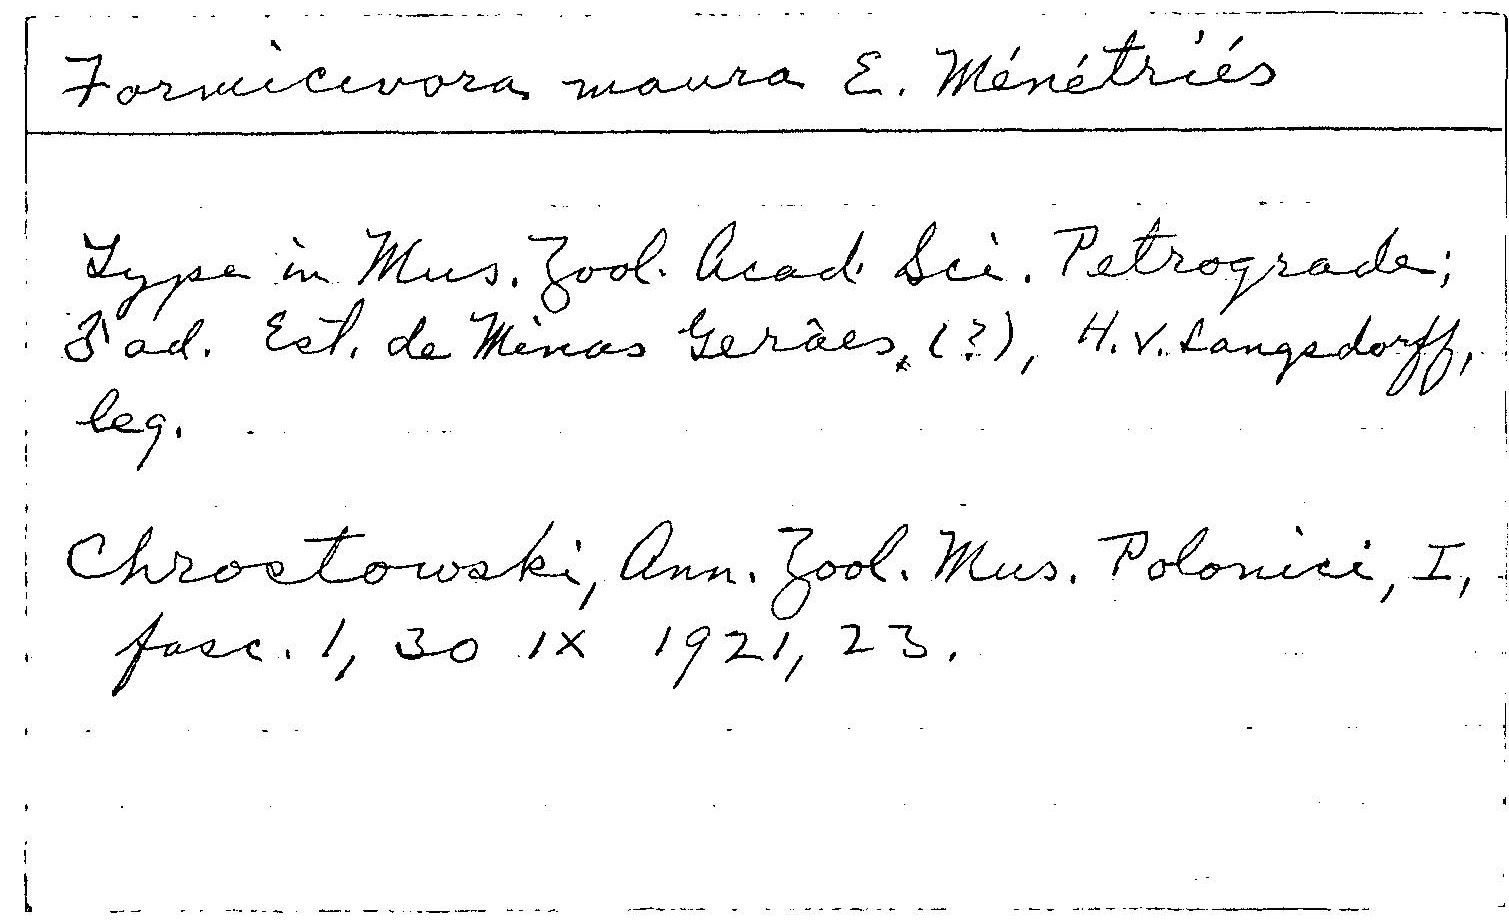 Formicivora maura E. Ménétriés
Type in Mus. Zool. Acad. Sci. Petrograde;
♂ ad. Est. de Minas Gerâes, (?), H. v. Langsdorff,
leg.
Chrostowski, Ann. Zool. Mus. Polonici, I,
fasc. 1, 30 IX 1921, 23.